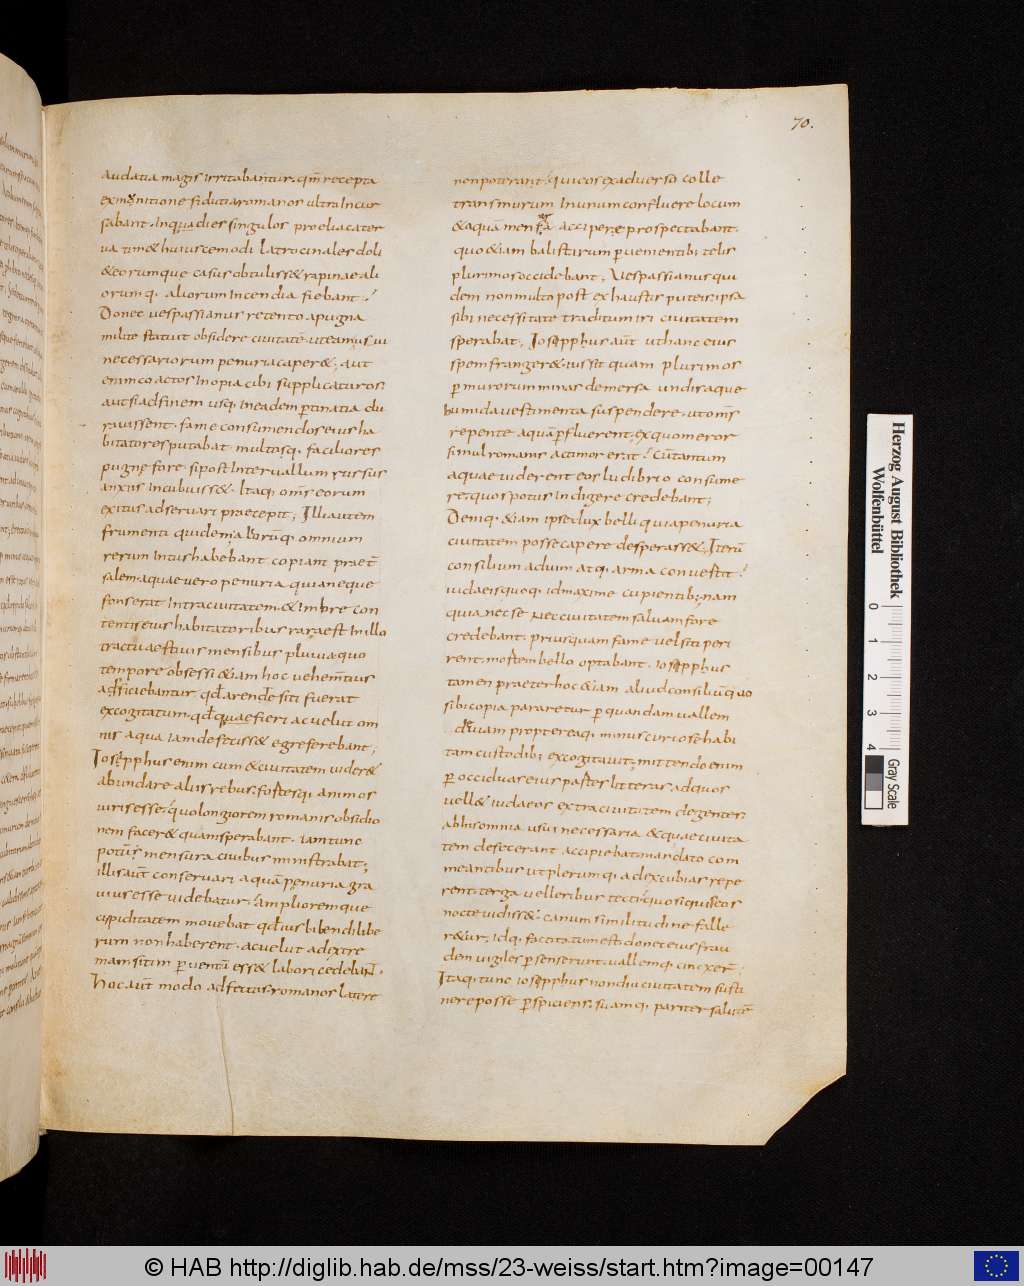 70.
audatia magis irritabantur. q̅m recepta
ex munitione fidutia romanos ultra incur
sabant. Inq; dies singulos proelia cater
uatim & huiuscemodi latrocinales doli
& eorumque casus obtuliss& rapinae ali
orumq. aliorum incendia fiebant;
Donec uespassianus retento a pugna
milite statuit obsidere ciuitatē. ut eam suis
necessariorum penuria caper&; aut
enim coactos inopia cibi supplicaturos.
aut si ad finem usq. in eadem ptinatia du
rauissent. fame consumendos eius ha
bitatores putabat multosq. faciliores
pugnę fore si post interuallum rursus
anxiis incubuiss&. Itaq. om̅s eorum
exitus adseruari praecepit; Illi autem
frumenti quidem aliarūq. omnium
rerum intus habebant copiam praet̅
salem. aquae uero penuria quia neque
fons erat intra ciuitatem. & imbre con
tentis eius habitatoribus rara est in illo
tractu aestiuis mensibus pluuia quo
tempore obsessi & iam hoc uehem̅tius
adficiebantur. qđ arendę siti fuerat
excogitatum. qđ quae fieri ac uelut om
nis aqua iam defeciss& egre ferebant;
Iosepphus enim cum & ciuitatem uider&
abundare aliis rebus. fortesq. animos
uiris esse. quo longiorem romanis obsidio
nem facer& quam sperabant. iam tunc
potus mensura ciuibus ministrabat;
illis aut̅ conseruari aquā penuria gra
uius esse uidebatur. ampliorem que
cupiditatem mouebat qđ ius bibendi libe
rum non haberent. ac uelut ad extre
mam sitim puentū ess& labori cedebaN̅.
Hoc aut̅ modo adfectus. romanos latere
non poterant. qui eos ex aduerso colle
trans murum in unum confluere locum
& aquā mensura accipere prospectabant.
quo & iam balistirum puementib; telis
plurimos occidebant; Uespassianus qui
dem non multo post exhaustis puteis. ipsa
sibi necessitate traditum iri ciuitatem
sperabat; Iosepphus aūt ut hanc eius
spem franger& iussit quam plurimos
p murorum minas demersa undis aque
humida uestimenta suspendere. ut om̅s
repente aquā pfluerent. ex quo meror
simul romanis ac timor erat. Cū tantum
aquae uiderent eos ludibrio consume
re. quos potus indigere credebant;
Deniq. & iam ipse dux belli qui a penuria
ciuitatem posse capere desperass&. Iterū
consilium ad uim atq. arma conuertit.
iudaeisquoq. id maxime cupientib; nam
quia nec se nec ciuitatem saluam fore
credebant. priusquam fame uel siti peri
rent. mortem bello optabant. iosepphus
tamen praeter hoc & iam aliud consiliū quo
sibi copia pararetur p quandam uallem
deuiam propter eaq. minus curiose habi
tam custodib; excogitauit; mittendo enim
p occiduas eius partes litteras. ad quos
uell& iudaeos extra ciuitatem degentes.
ab his omnia usui necessaria & quae ciuita
tem defecerant accipiebat mandato com
meantibus ut plerumq. ad excubias repe
rent. terga uelleribus tecti. quo si qui eos
nocte uidiss&. canum similitudine falle
r&ur; idq. factitatum est. donec eius frau
dem uigiles psenserunt. uallemq. cinxer̅;
Itaq. tunc iosepphus non diu ciuitatem susti
nere posse pspiciens. suamq. pariter salutē
Herzog August Bibliothek
Wolfenbüttel
0 1 2 3 4
Gray Scale
© HAB http://diglib.hab.de/mss/23-weiss/start.htm?image=00147